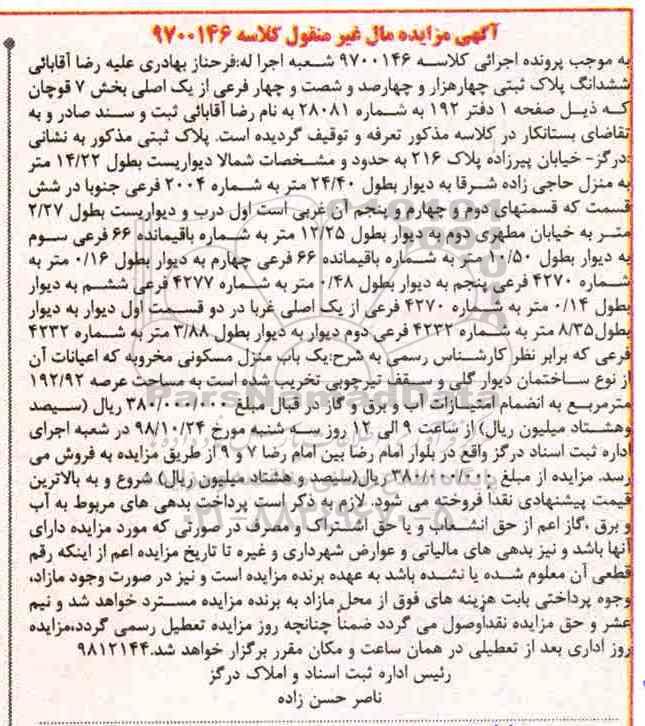 آگهی مزایده مال غیر منقول کلاسه ۹۷۰۰۱۴۶
به موجب پرونده اجرائی کلاسه ۹۷۰۰۱۴۶ شعبه اجرا له:فرحناز بهادری علیه رضا آقابائی
ششدانگ پلاک ثبتی چهارهزار و چهارصد و شصت و چهار فرعی از یک اصلی بخش ۷ قوچان
که ذیل صفحه ۱ دفتر ۱۹۲ به شماره ۲۸۰۸۱ به نام رضا آقابائی ثبت و سند صادر و به
تقاضای بستانکار در کلاسه مذکور تعرفه و توقیف گردیده است. پلاک ثبتی مذکور به نشانی
:درگز- خیابان پیرزاده پلاک ۲۱۶ به حدود و مشخصات شمالا دیواریست بطول ۱۴/۲۲ متر
به منزل حاجی زاده شرقا به دیوار بطول ۲۴/۴۰ متر به شماره ۲۰۰۴ فرعی جنوبا در شش
قسمت که قسمتهای دوم و چهارم و پنجم آن غربی است اول درب و دیواریست بطول ۲/۲۷
متر به خیابان مطهری دوم به دیوار بطول ۱۲/۲۵ متر به شماره باقیمانده ۶۶ فرعی سوم
به دیوار بطول ۱۰/۵۰ متر به شماره باقیمانده ۶۶ فرعی چهارم به دیوار بطول ۰/۱۶ متر به
شماره ۴۲۷۰ فرعی پنجم به دیوار بطول ۰/۴۸ متر به شماره ۴۲۷۷ فرعی ششم به دیوار
بطول ۰/۱۴ متر به شماره ۴۲۷۰ فرعی از یک اصلی غربا در دو قسمت اول دیوار به دیوار
بطول۸/۳۵ متر به شماره ۴۲۳۲ فرعی دوم دیوار به دیوار بطول ۳/۸۸ متر به شماره ۴۲۳۲
فرعی که برابر نظر کارشناس رسمی به شرح:یک باب منزل مسکونی مخروبه که اعیانات آن
از نوع ساختمان دیوار گلی و سقف تیرچوبی تخریب شده است به مساحت عرصه ۱۹۲/۹۲
مترمربع به انضمام امتیازات آب و برق و گاز در قبال مبلغ ۳۸۰/۰۰۰/۰۰۰ ریال (سیصد
وهشتاد میلیون ریال) از ساعت ۹ الی ۱۲ روز سه شنبه مورخ ۹۸/۱۰/۲۴ در شعبه اجرای
اداره ثبت اسناد درگز واقع در بلوار امام رضا بین امام رضا ۷ و ۹ از طریق مزایده به فروش می
رسد. مزایده از مبلغ ۳۸۰/۰۰۰/۰۰۰ ریال(سیصد و هشتاد میلیون ریال) شروع و به بالاترین
قیمت پیشنهادی نقدا فروخته می شود. لازم به ذکر است پرداخت بدهی های مربوط به آب
و برق ،گاز اعم از حق انشعاب و یا حق اشتراک و مصرف در صورتی که مورد مزایده دارای
آنها باشد و نیز بدهی های مالیاتی و عوارض شهرداری و غیره تا تاریخ مزایده اعم از اینکه رقم
قطعی آن معلوم شده یا نشده باشد به عهده برنده مزایده است و نیز در صورت وجود مازاد،
وجوه پرداختی بابت هزینه های فوق از محل مازاد به برنده مزایده مسترد خواهد شد و نیم
عشر و حق مزایده نقداًوصول می گردد ضمناً چنانچه روز مزایده تعطیل رسمی گردد،مزایده
روز اداری بعد از تعطیلی در همان ساعت و مکان مقرر برگزار خواهد شد.۹۸۱۲۱۴۴
رئیس اداره ثبت اسناد و املاک درگز
ناصر حسن زاده
ParsNamadData